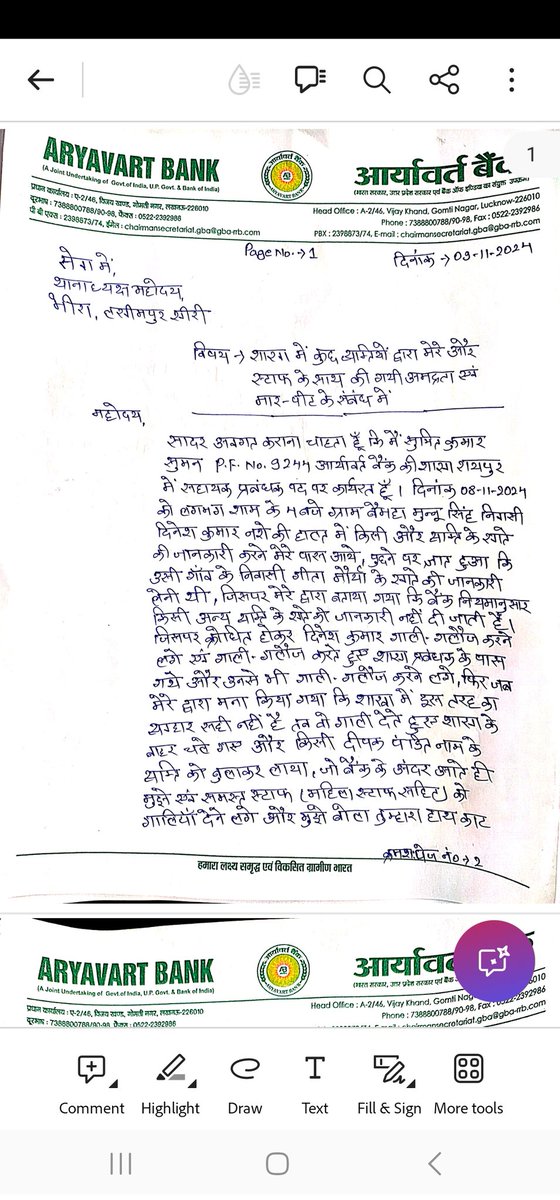 1
ARYAVART BANK
(A Joint Undertaking of Govt.of India, U.P. Govt. & Bank of India)
प्रधान कार्यालय : ए-2/46, विजय खण्ड, गोमती नगर, लखनऊ-226010
दूरभाष : 7388800788/90-98, फैक्स : 0522-2392986
पी बी एक्स : 2398873/74, ईमेल : chairmansecretariat.gba@gba-rrb.com
आर्यावर्त बैंक
(भारत सरकार, उत्तर प्रदेश सरकार एवं बैंक ऑफ इण्डिया का संयुक्त उपक्रम)
Head Office : A-2/46, Vijay Khand, Gomti Nagar, Lucknow-226010
Phone : 7388800788/90-98, Fax : 0522-2392986
PBX : 2398873/74, E-mail : chairmansecretariat.gba@gba-rrb.com
Page No.→1
दिनांक → 09-11-2024
सेवा में,
थानाध्यक्ष महोदय,
भीरा, लखीमपुर खीरी
विषय → शाखा में कुछ व्यक्तियों द्वारा मेरे और
स्टाफ के साथ की गयी अभद्रता एवं
मार-पीट के संबंध में
महोदय,
सादर अवगत कराना चाहता हूँ कि मैं सुमित कुमार
सुमन P.F. No. 9244 आर्यावर्त बैंक की शाखा रायपुर
में सहायक प्रबंधक पद पर कार्यरत हूँ। दिनांक 08-11-2024
को लगभग शाम के 4 बजे ग्राम बैमहा मुन्नू सिंह निवासी
दिनेश कुमार नशे की हालत में किसी और व्यक्ति के खाते
की जानकारी करने मेरे पास आये, पूछने पर ज्ञात हुआ कि
उसी गाँव के निवासी गीता मौर्या के खाते की जानकारी
लेनी थी, जिसपर मेरे द्वारा बताया गया कि बैंक नियमानुसार
किसी अन्य व्यक्ति के खाते की जानकारी नहीं दी जाती है।
जिसपर क्रोधित होकर दिनेश कुमार गाली-गलौज करने
लगे एवं गाली-गलौज करते हुए शाखा प्रबंधक के पास
गये और उनसे भी गाली-गलौज करने लगे, फिर जब
मेरे द्वारा मना किया गया कि शाखा में इस तरह का
व्यवहार सही नहीं है तब वो गाली देते हुए शाखा के
बाहर चले गए और किसी दीपक पंडित नाम के
व्यक्ति को बुलाकर लाया, जो बैंक के अंदर आते ही
मुझे एवं समस्त स्टाफ (महिला स्टाफ सहित) को
गालियाँ देने लगे और मुझे बोला तुम्हारा हाथ काट
क्रमशः पेज नं० → 2
हमारा लक्ष्य समृद्ध एवं विकसित ग्रामीण भारत
ARYAVART BANK
(A Joint Undertaking of Govt.of India, U.P. Govt. & Bank of India)
प्रधान कार्यालय : ए-2/46, विजय खण्ड, गोमती नगर, लखनऊ-226010
दूरभाष : 7388800788/90-98, फैक्स : 0522-2392986
आर्याव
Head Office : A-2/46, Vijay Khand, Gomti Nag
Phone : 7388800788/90-98, Fax :
Comment
Highlight
Draw
Text
Fill & Sign
More tools